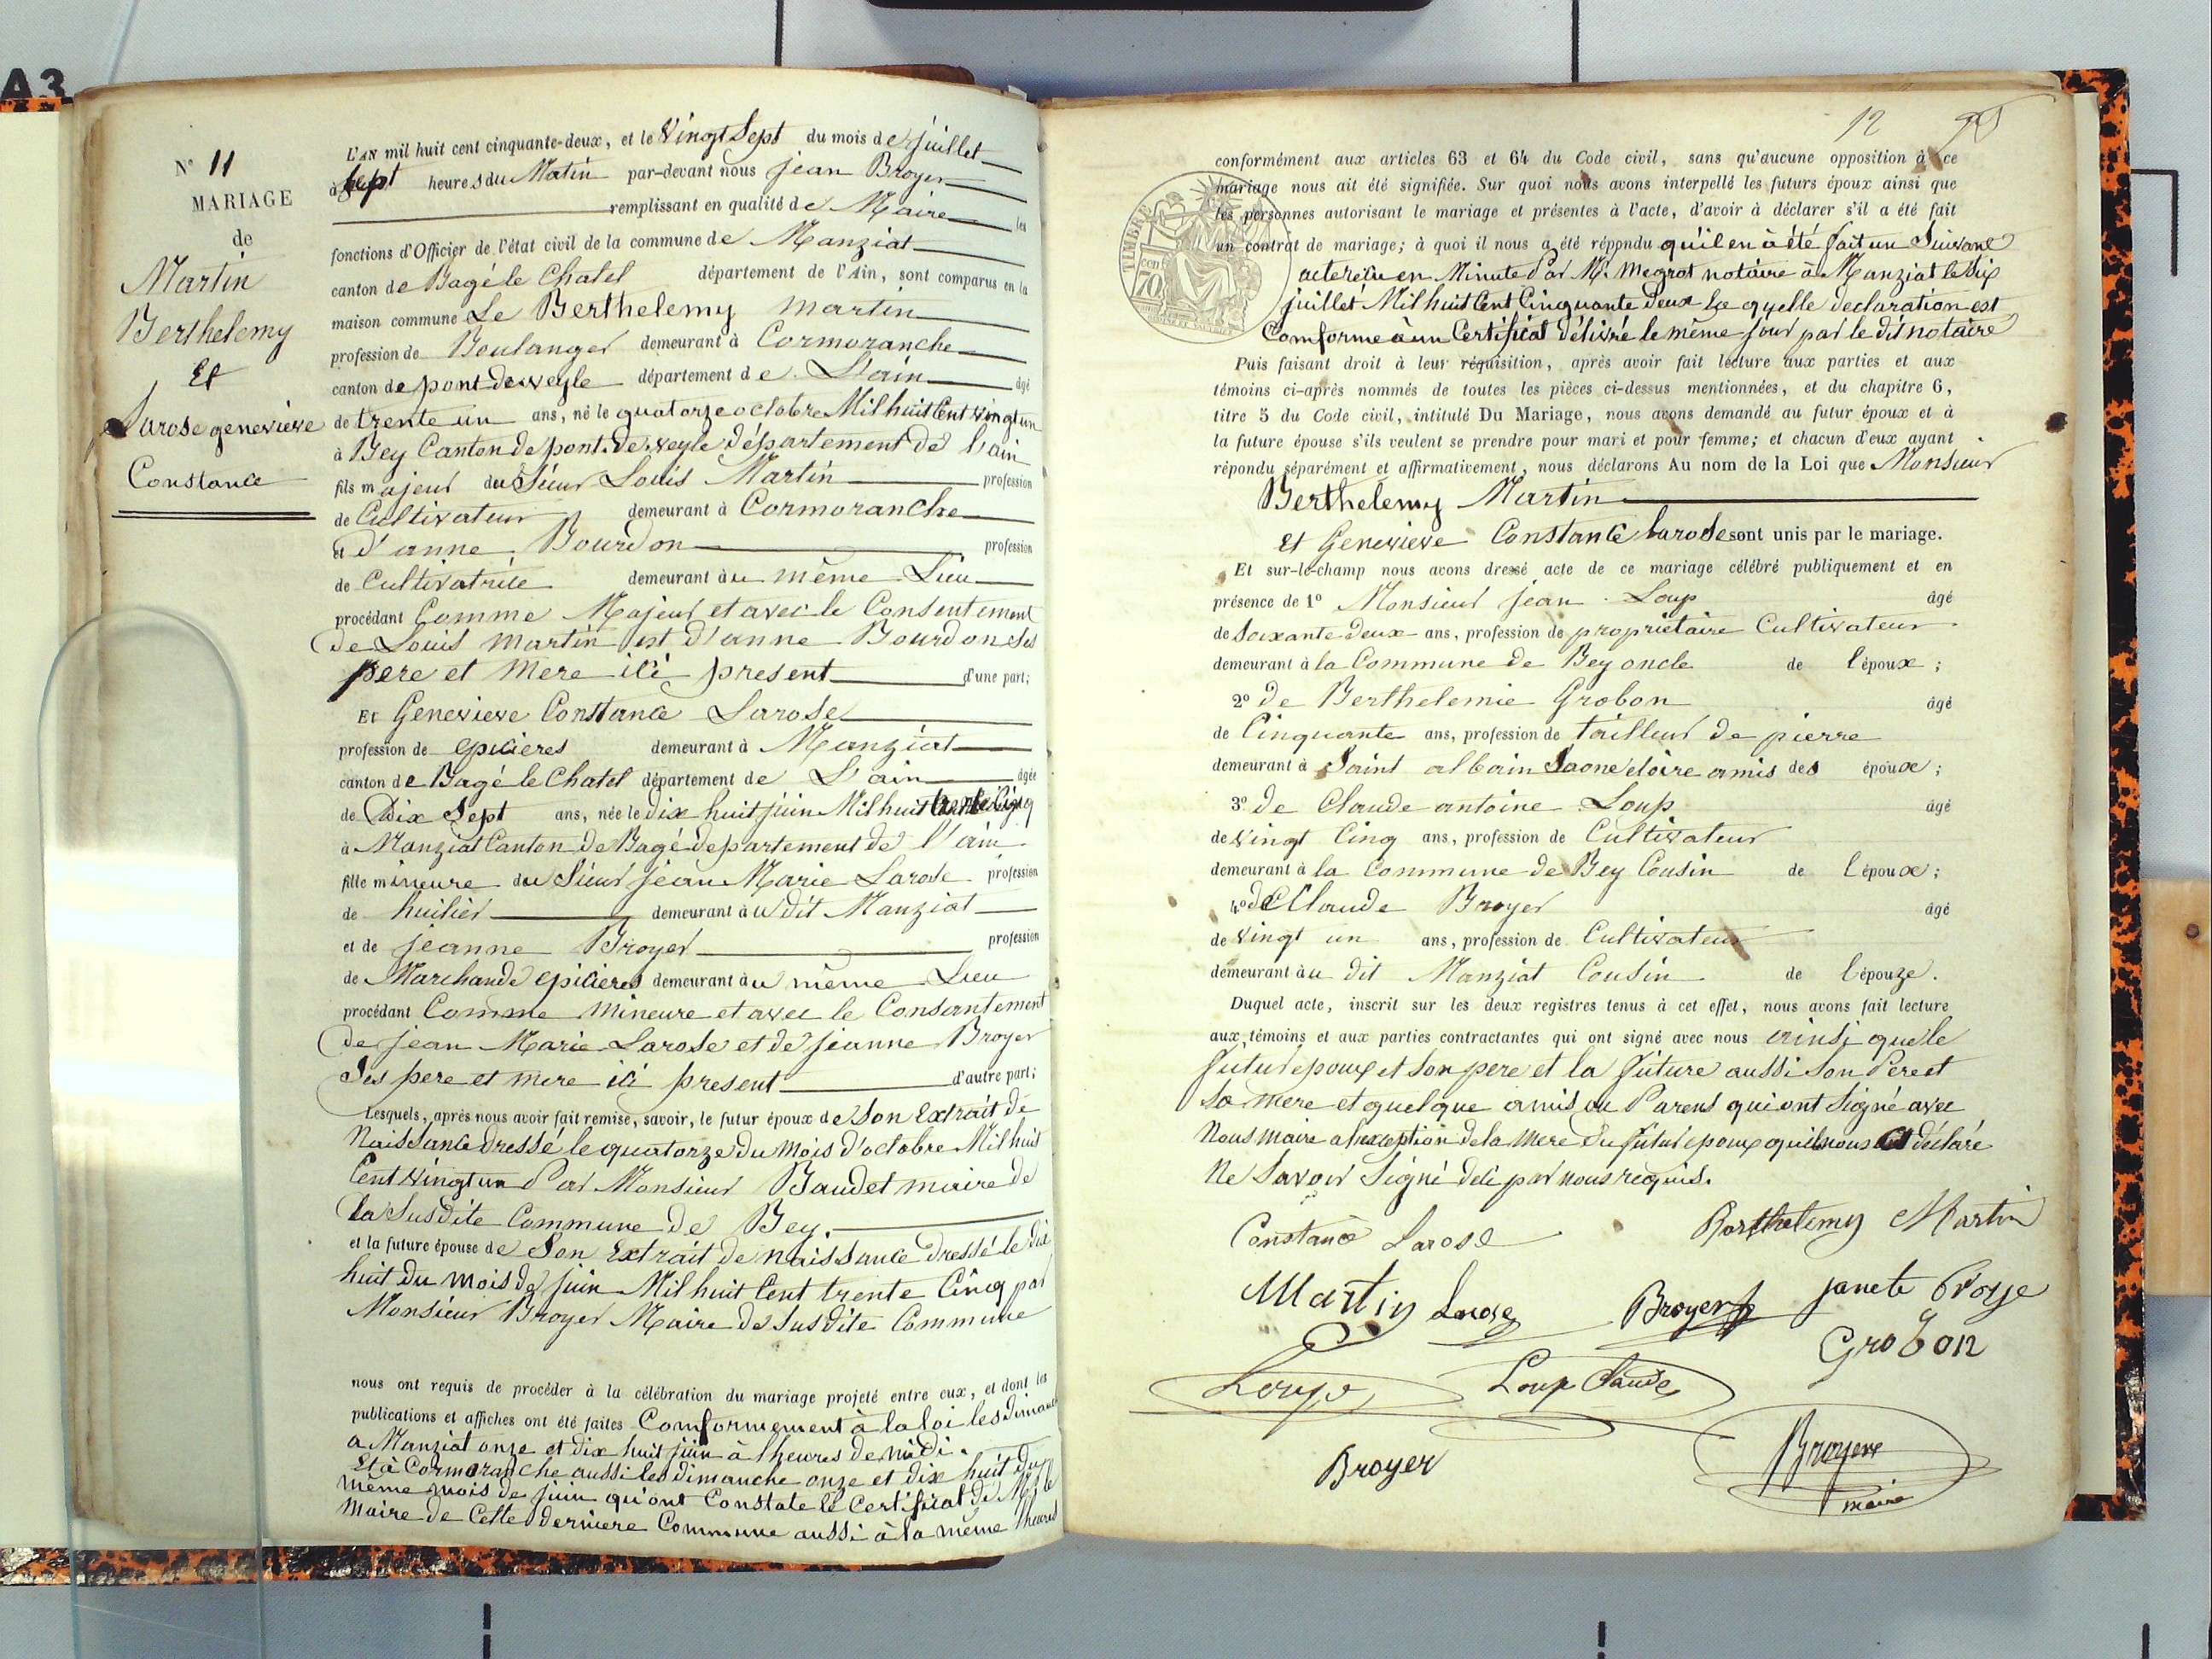 A3
N° 11
MARIAGE
de
Martin
Berthelemy
Et
Larose genevieve
Constance
L'AN mil huit cent cinquante-deux, et le Vingt Sept du mois de juillet
à Sept heures du Matin par-devant nous jean Broyer
remplissant en qualité de Maire les
fonctions d'Officier de l'état civil de la commune de Manziat
canton de Bagé le Chatel département de l'Ain, sont comparus en la
maison commune Le Berthelemy Martin
profession de Boulanger demeurant à Cormoranche
canton de pont deveyle département de Lain âgé
de trente un ans, né le quatorze octobre Mil huit Cent vingt un
à Bey Canton de pont deveyle département de lain
fils majeur du Sieur Louis Martin profession
de Cultivateur demeurant à Cormoranche
et d'anne Bourdon profession
de Cultivatrice demeurant au même Lieu
procédant Comme Majeur et avec le Consentement
de Louis martin est d'anne Bourdon ses
pere et Mere ici present d'une part;
Et Genevieve Constance Larose
profession de epicieres demeurant à Manziat
canton de Bagé le Chatel département de L'ain âgée
de Dix Sept ans, née le dix huit juin Mil huit Cent trente Cinq
à Manziat Canton de Bagé departement de l'ain
fille mineure du Sieur jean Marie Larose profession
de huilier demeurant au dit Manziat
et de jeanne Broyer profession
de Marchande epicieres demeurant au même Lieu
procédant Comme mineure et avec le Consantement
de jean Marie Larose et de jeanne Broyer
Ses pere et mere ici present d'autre part;
Lesquels, après nous avoir fait remise, savoir, le futur époux de Son Extrait de
Naissance dressé le quatorze du Mois d'octobre Mil huit
Cent vingt un Par Monsieur Baudet maire de
la Susdite Commune de Bey.
et la future épouse de Son Extrait de naissance dressé le dix
huit du mois de juin Mil huit Cent trente Cinq par
Monsieur Broyer Maire de Susdite Commune
nous ont requis de procéder à la célébration du mariage projeté entre eux, et dont les
publications et affiches ont été faites Comformement à la loi les dimanche
a Manziat onze et dix huit juin à lheures de midi.
Et à Cormoranche aussi les dimanche onze et dix huit du
même mois de juin qu'ont Constate le Certificat de Mr le
Maire de Cette derniere Commune aussi à la même lheures
12
conformément aux articles 63 et 64 du Code civil, sans qu'aucune opposition à ce
mariage nous ait été signifiée. Sur quoi nous avons interpellé les futurs époux ainsi que
les personnes autorisant le mariage et présentes à l'acte, d'avoir à déclarer s'il a été fait
un contrat de mariage; à quoi il nous a été répondu qu'il en à été fait un Suivant
acte recu en Minute Par Mr. Megrot notaire à Manziat le Six
juillet Mil huit Cent Cinquante deux la quelle declaration est
Comforme à un Certificat délivré le même jour par le dit notaire
TIMBRE
70 cent
Puis faisant droit à leur réquisition, après avoir fait lecture aux parties et aux
témoins ci-après nommés de toutes les pièces ci-dessus mentionnées, et du chapitre 6,
titre 5 du Code civil, intitulé Du Mariage, nous avons demandé au futur époux et à
la future épouse s'ils veulent se prendre pour mari et pour femme; et chacun d'eux ayant
répondu séparément et affirmativement, nous déclarons Au nom de la Loi que Monsieur
Berthelemy Martin
et Genevieve Constance Larose sont unis par le mariage.
Et sur-le-champ nous avons dressé acte de ce mariage célébré publiquement et en
présence de 1° Monsieur jean Loup âgé
de Soixante deux ans, profession de propriétaire Cultivateur
demeurant à la Commune de Bey oncle de l'époux;
2° de Berthelemie Grobon âgé
de Cinquante ans, profession de tailleur de pierre
demeurant à Saint albain Saone et loire amis des époux;
3° de Claude antoine Loup âgé
de Vingt Cinq ans, profession de Cultivateur
demeurant à la Commune de Bey Cousin de l'époux;
4° de Claude Broyer âgé
de Vingt un ans, profession de Cultivateur
demeurant au dit Manziat Cousin de l'épouze.
Duquel acte, inscrit sur les deux registres tenus à cet effet, nous avons fait lecture
aux témoins et aux parties contractantes qui ont signé avec nous ainsi que le
futur epoux et Son pere et la future aussi Son Pere et
Sa mere et quelque amis ou Parens qui ont Signé avec
Nous maire a lexception de la Mere du futur epoux qu'il nous a déclaré
Ne Savoir Signé dele par nous requis.
Constance Larose Barthelemy Martin
Martin Larose Broyer janete Broye
Grobon
Loup Loup Claude
Broyer Broyer
maire